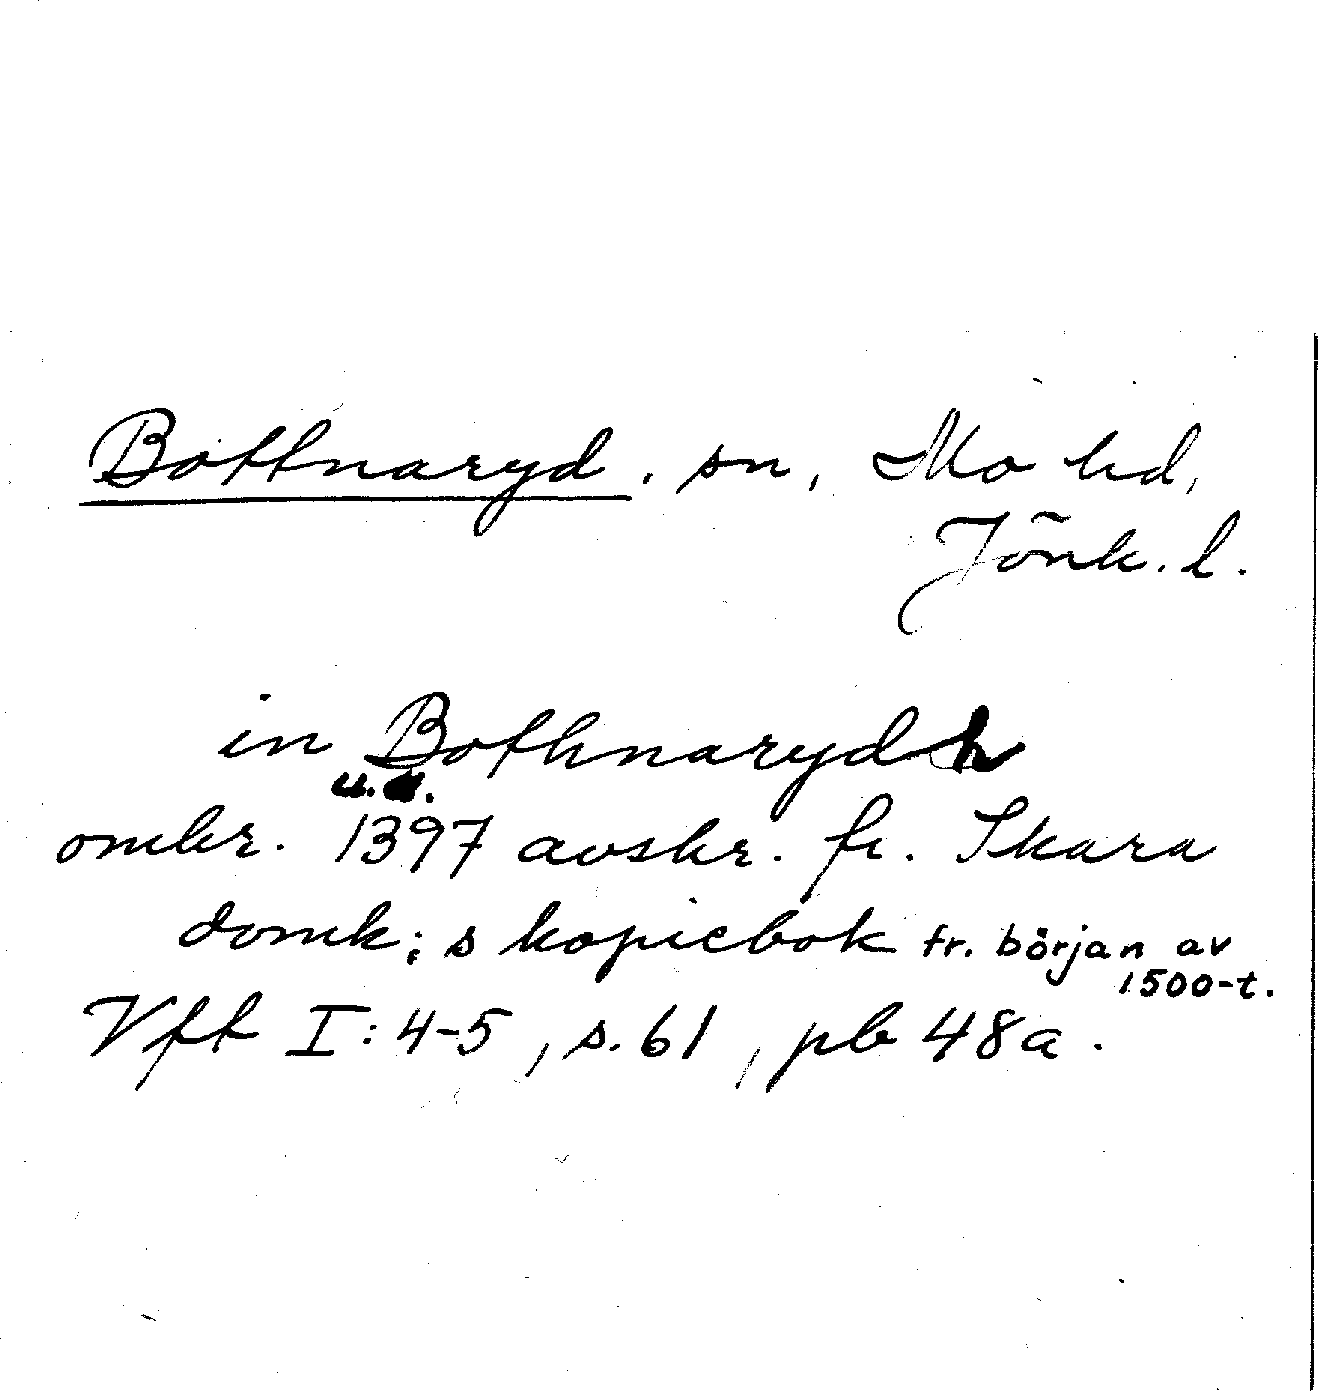 Bottnaryd. sn, Mo hd,
Jönk. l.
in Bothnarydh
u.å.
omkr. 1397 avskr. fr. Skara
domk:s kopiebok fr. början av
1500-t.
Vft I:4-5, s. 61, pb 48a.